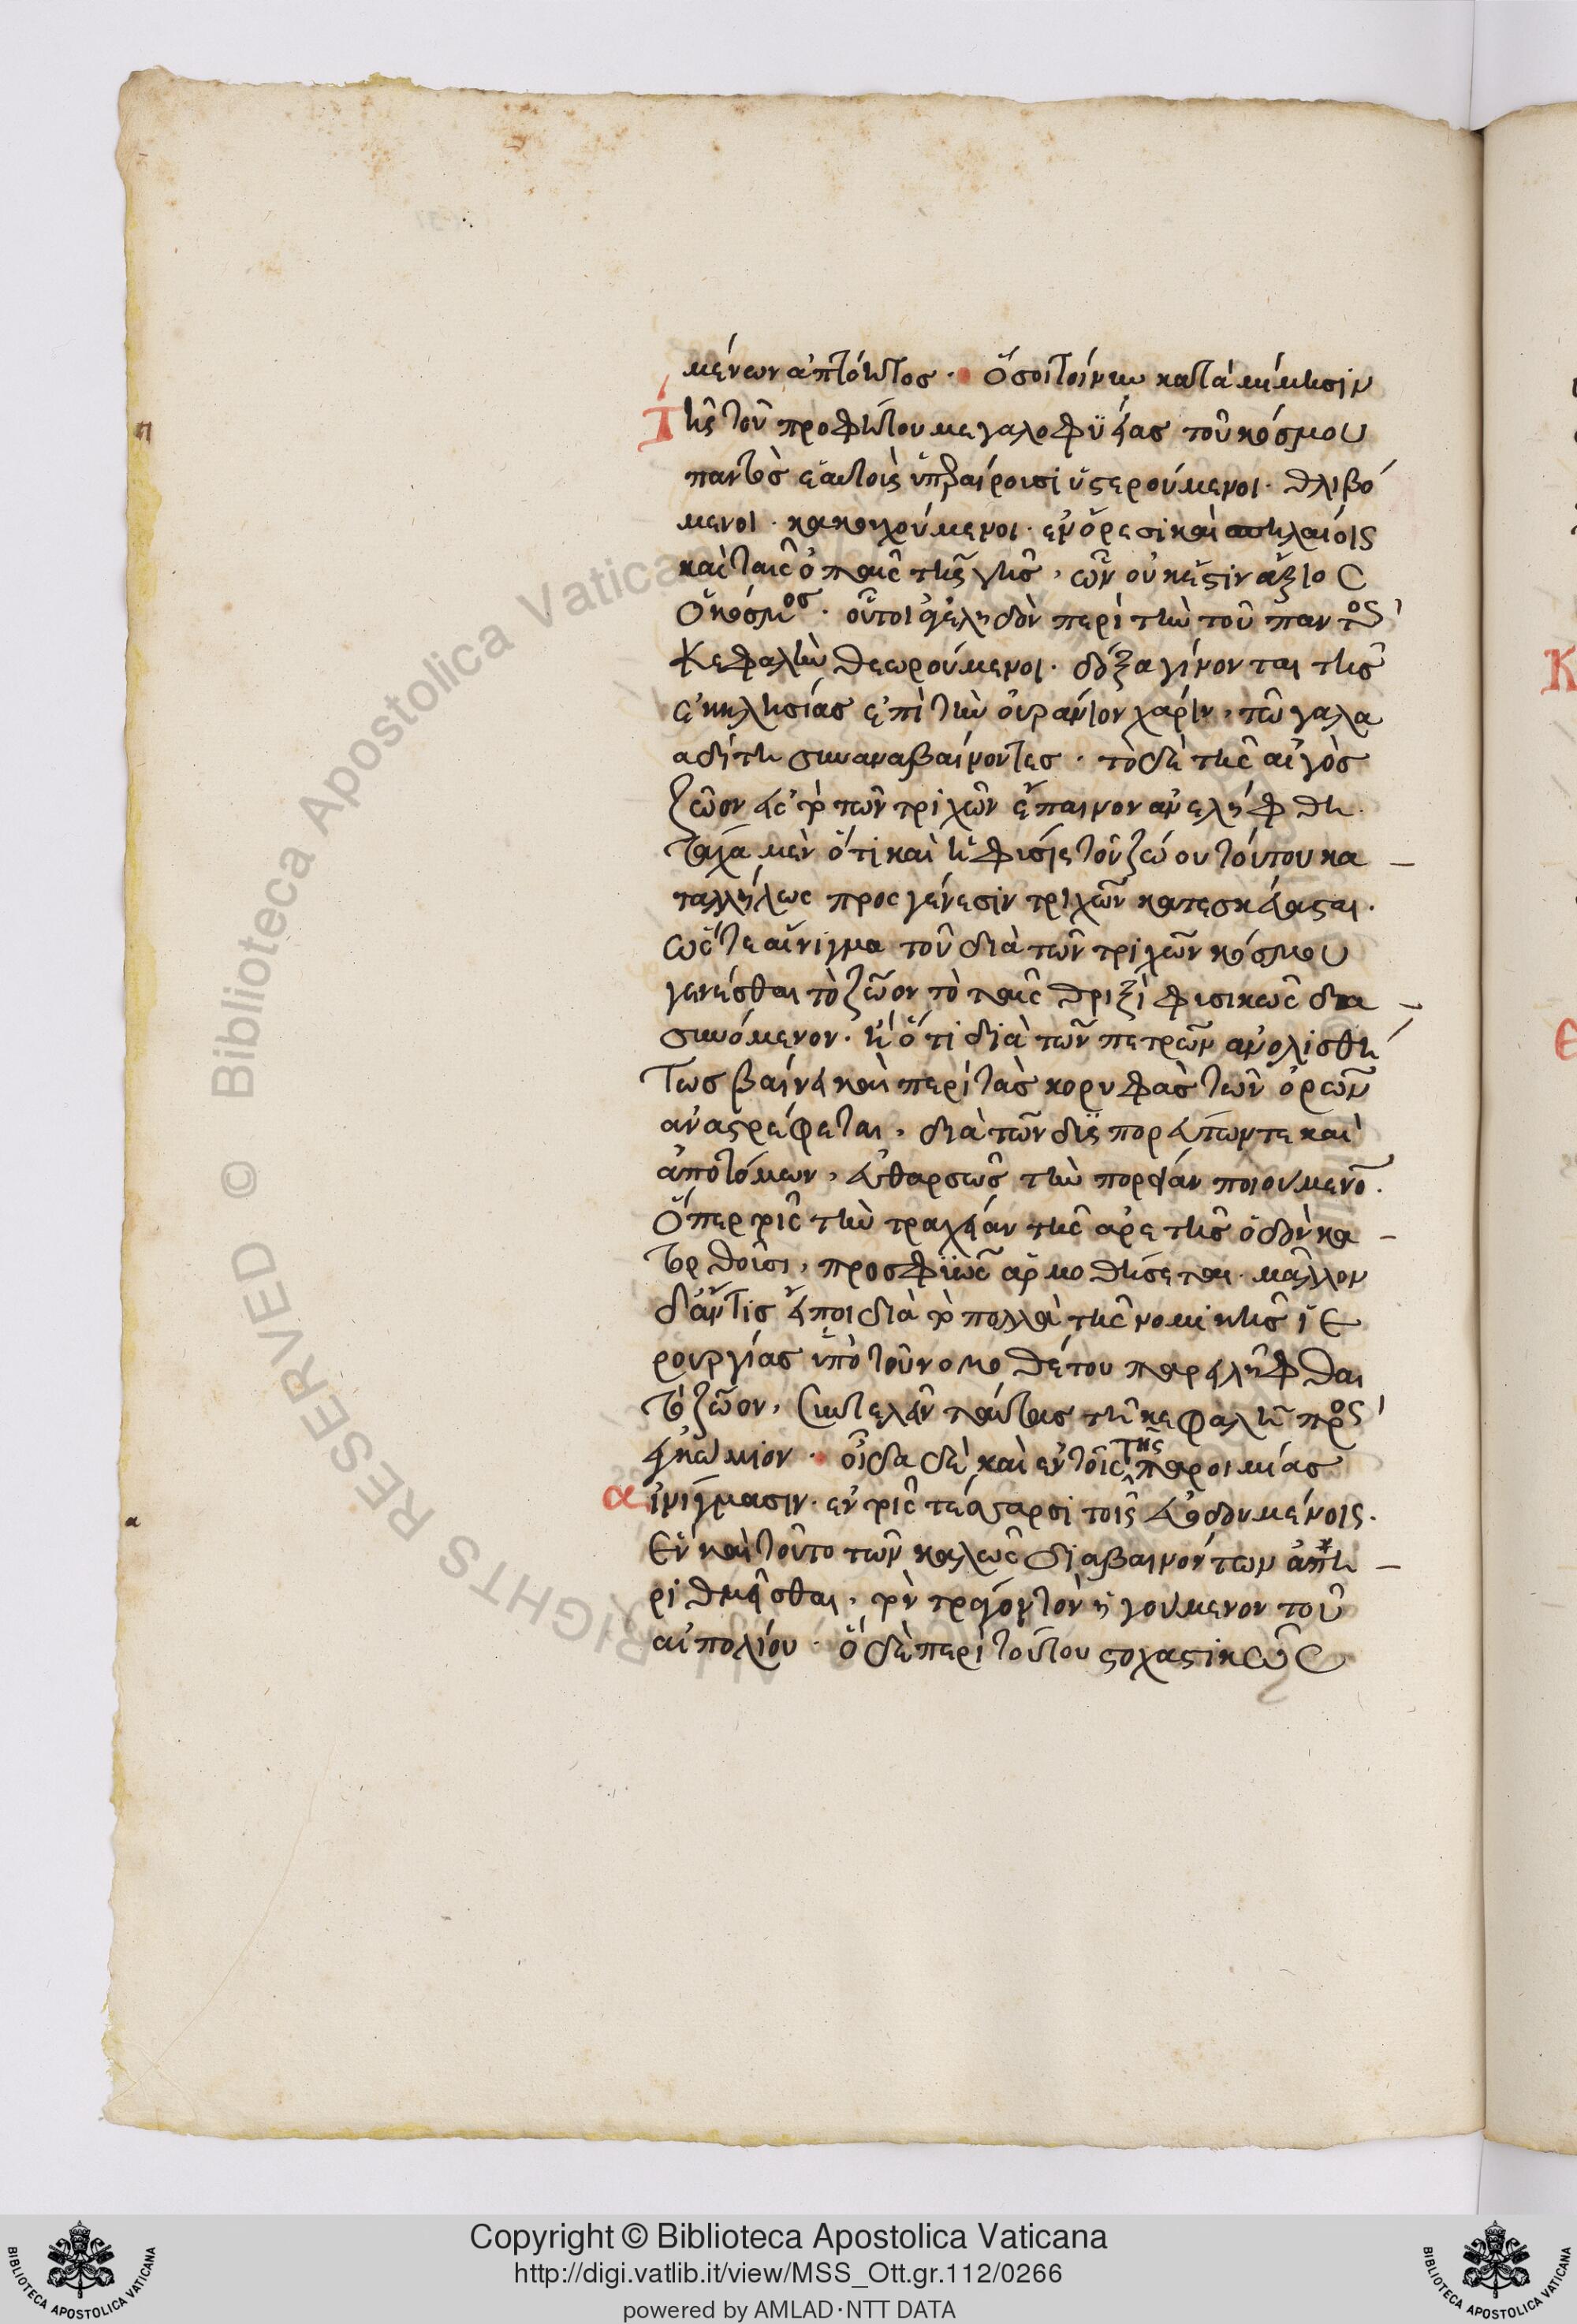 μένων ἀπτόητος · Ὅσοι τοίνυν κατὰ μίμησιν
τῆς τοῦ προφήτου μεγαλοφϋείας τοῦ κόσμου
παντὸς ἑαυτοὺς ὑπεραίρουσι ὑστερούμενοι · θλιβό
μενοι · κακουχούμενοι · ἐν ὄρεσι καὶ σπηλαίοις
καὶ ταῖς ὀπαῖς τῆς γῆς, ὧν οὐκ ἔστιν ἄξιος
ὁ κόσμος · οὗτοι ἀγεληδὸν περὶ τὴν τοῦ παντὸς
κεφαλὴν θεωρούμενοι · δόξα γίνονται τῆς
ἐκκλησίας ἐπὶ τὴν οὐράνιον χάριν, τῷ γαλα
αδίτη συναναβαίνοντες · τὸ δὲ τῆς αἰγὸς
ζῶον εἰς τὸν τῶν τριχῶν ἔπαινον ἀνελήφθη ·
τάχα μὲν ὅτι καὶ ἡ φύσις τοῦ ζώου τούτου κα
ταλλήλως πρὸς γένεσιν τριχῶν κατεσκεύασται ·
ὥστε αἴνιγμα τοῦ διὰ τῶν τριχῶν κόσμου
γενέσθαι τὸ ζῶον τὸ ταῖς θριξὶ φυσικῶς δα
συνόμενον · ἢ ὅτι διὰ τῶν πετρῶν ἀνολισθή
τως βαίνει καὶ περὶ τὰς κορυφὰς τῶν ὀρῶν
ἀναστρέφεται, διὰ τῶν δυσπορεύτων τε καὶ
ἀποτόμων, εὐθαρσῶς τὴν πορείαν ποιούμενον ·
Ὅπερ τοῖς τὴν τραχεῖαν τῆς ἀρετῆς ὁδὸν κα
τορθοῦσι, προσφυῶς ἁρμοσθήσεται · μᾶλλον
δ' ἄν τις εἴποι διὰ τὸ πολλὰ τῆς νομικῆς ἱε
ρουργίας ὑπὸ τοῦ νομοθέτου παρειλῆφθαι
τὸ ζῶον, συντελεῖν ταύτας τῇ κεφαλῇ πρὸς
ἐγκώμιον · οἶδα δὲ καὶ ἐν τοῖς τῆς παροιμίας
αἰνίγμασιν · ἐν τοῖς τέσσαρσι τοῖς εὐοδουμένοις ·
Ἓν καὶ τοῦτο τῶν καλῶς διαβαινόντων ἀπη
ριθμῆσθαι, τὸν τράγον τὸν ἡγούμενον τοῦ
αἰπολίου · ὃ δὲ περὶ τούτου στοχαστικῶς
Copyright © Biblioteca Apostolica Vaticana
http://digi.vatlib.it/view/MSS_Ott.gr.112/0266
powered by AMLAD·NTT DATA